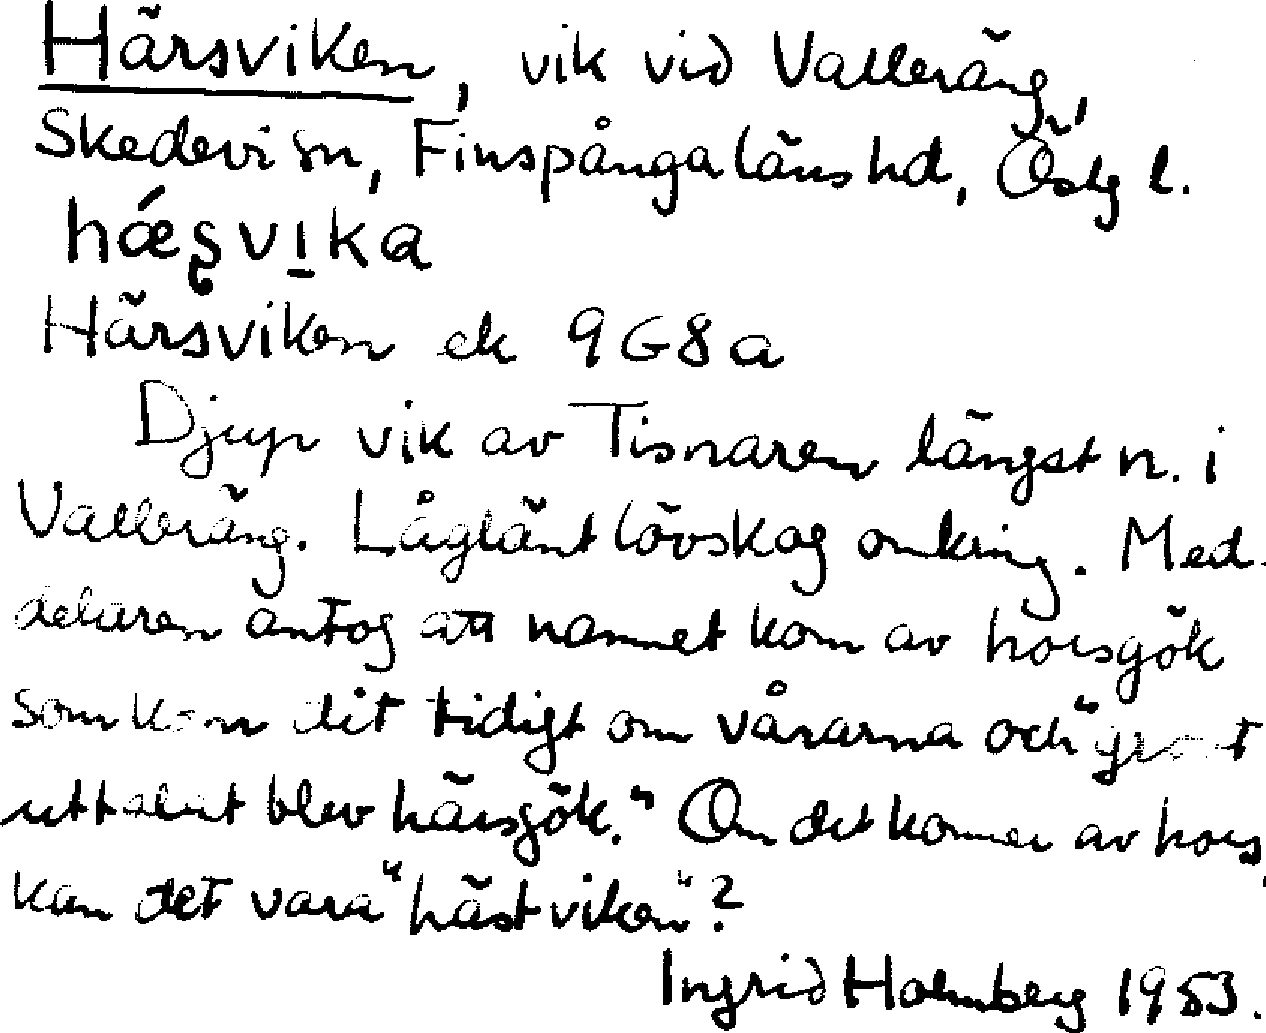 Härsviken, vik vid Valleräng,
Skedevi sn, Finspånga läns hd, Östg l.
hǽʂvi̱ka
Härsviken ek 9G8a
Djup vik av Tisnaren längst n. i
Valleräng. Låglänt lövskog omkring. Med-
delaren antog att namnet kom av horsgök
som kom dit tidigt om vårarna och "grovt
uttalat blev härsgök." Om det kommer av hors,
kan det vara "hästviken"?
Ingrid Holmberg 1953.